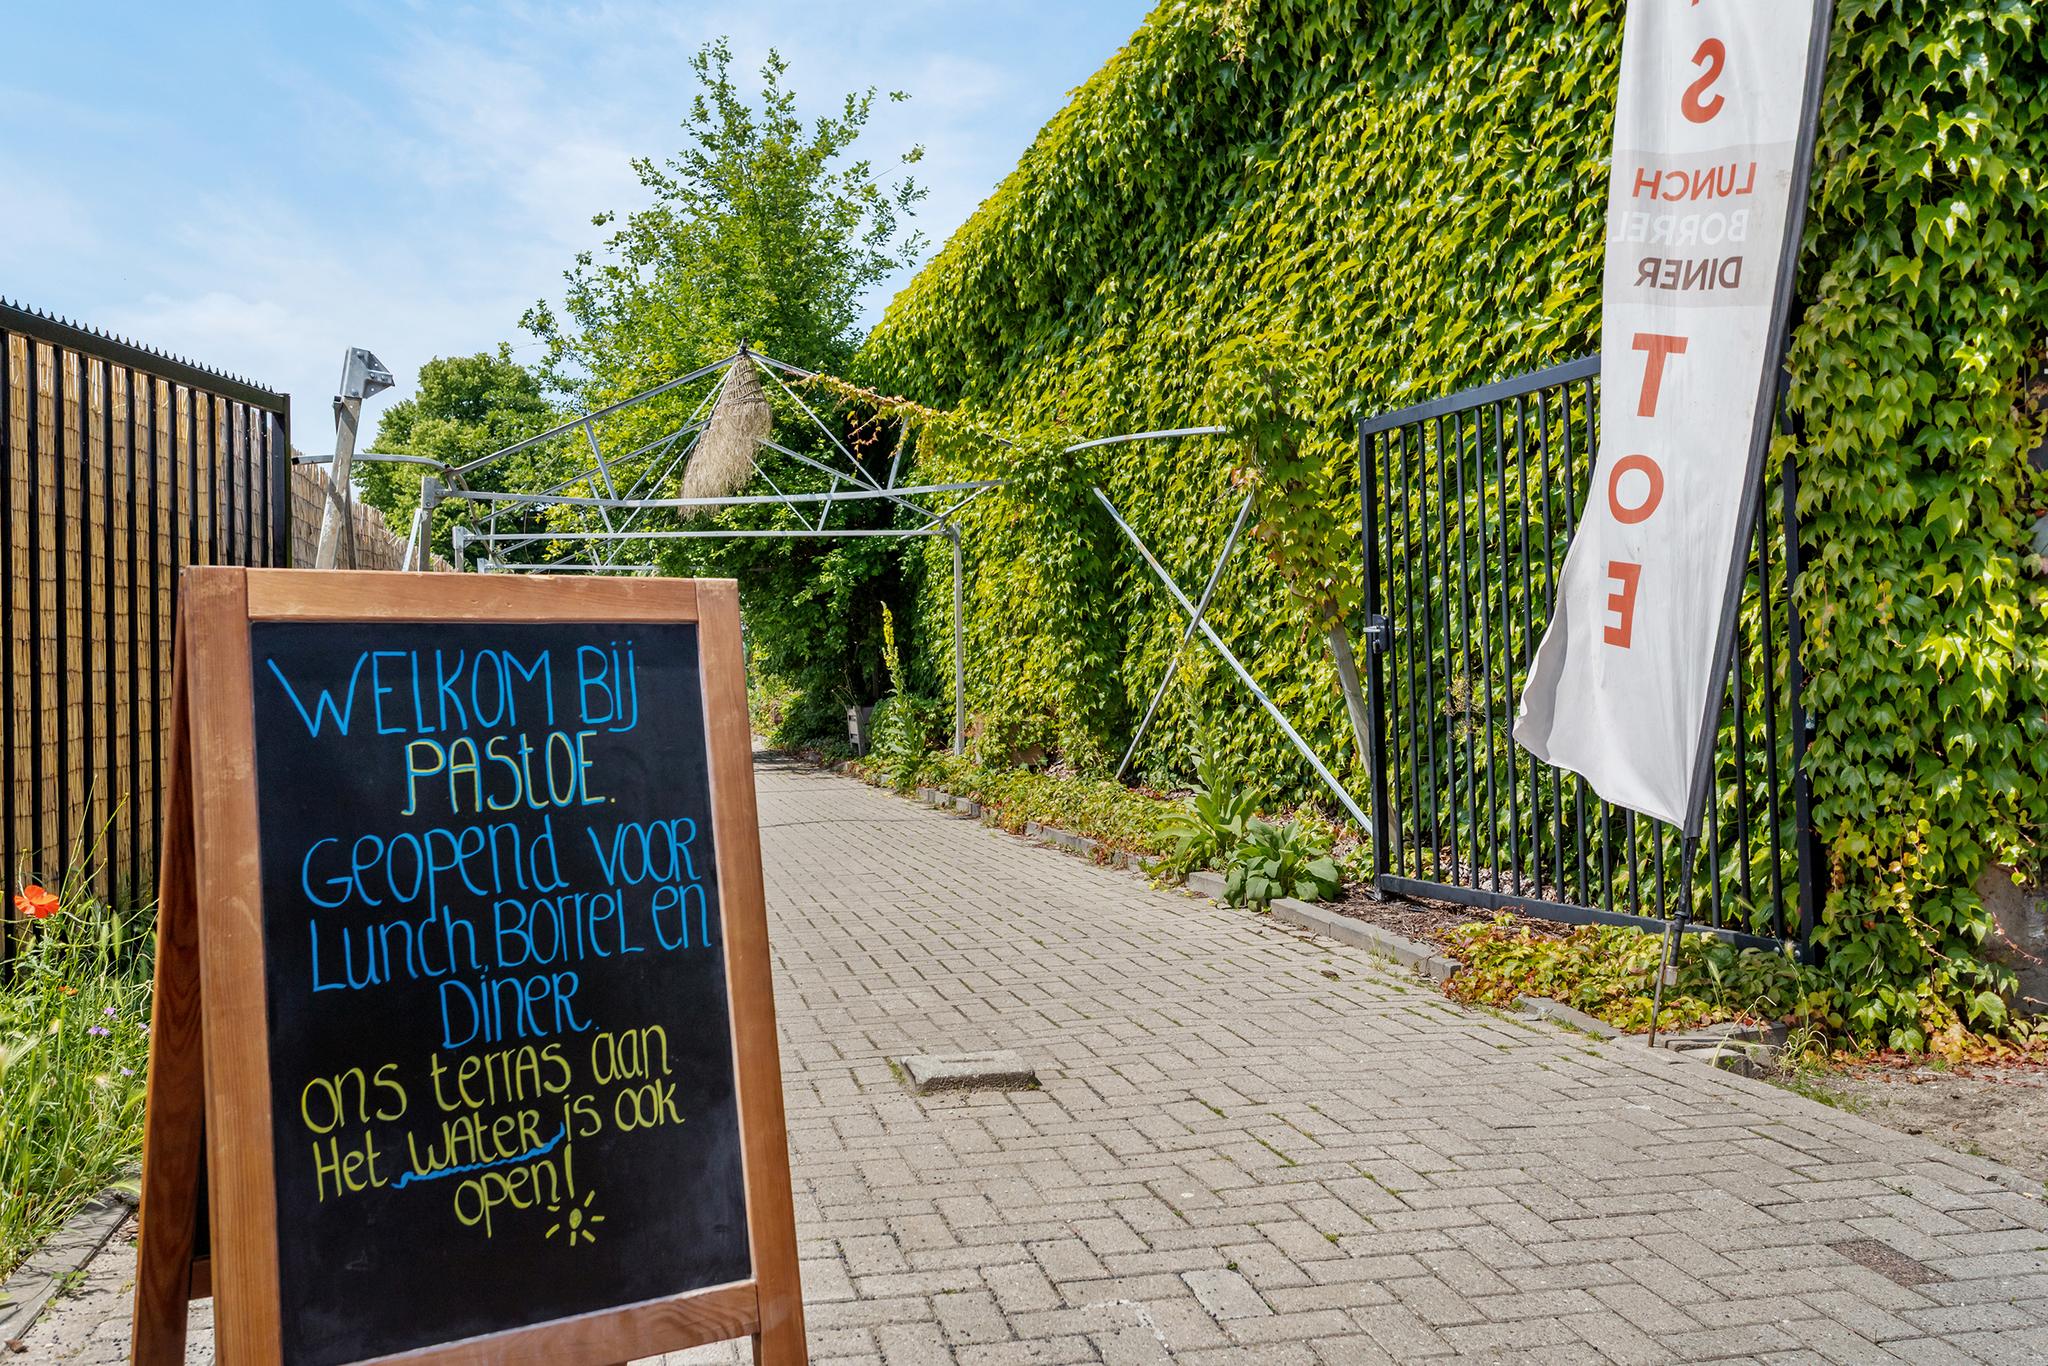 WELKOM BIJ
PAStOE.
GEOPEND VOOR
LUNCH, BORREL EN
DINER.
ONS terras aan
Het WATER is OOK
open!
S
LUNCH
BORREL
DINER
T
O
E